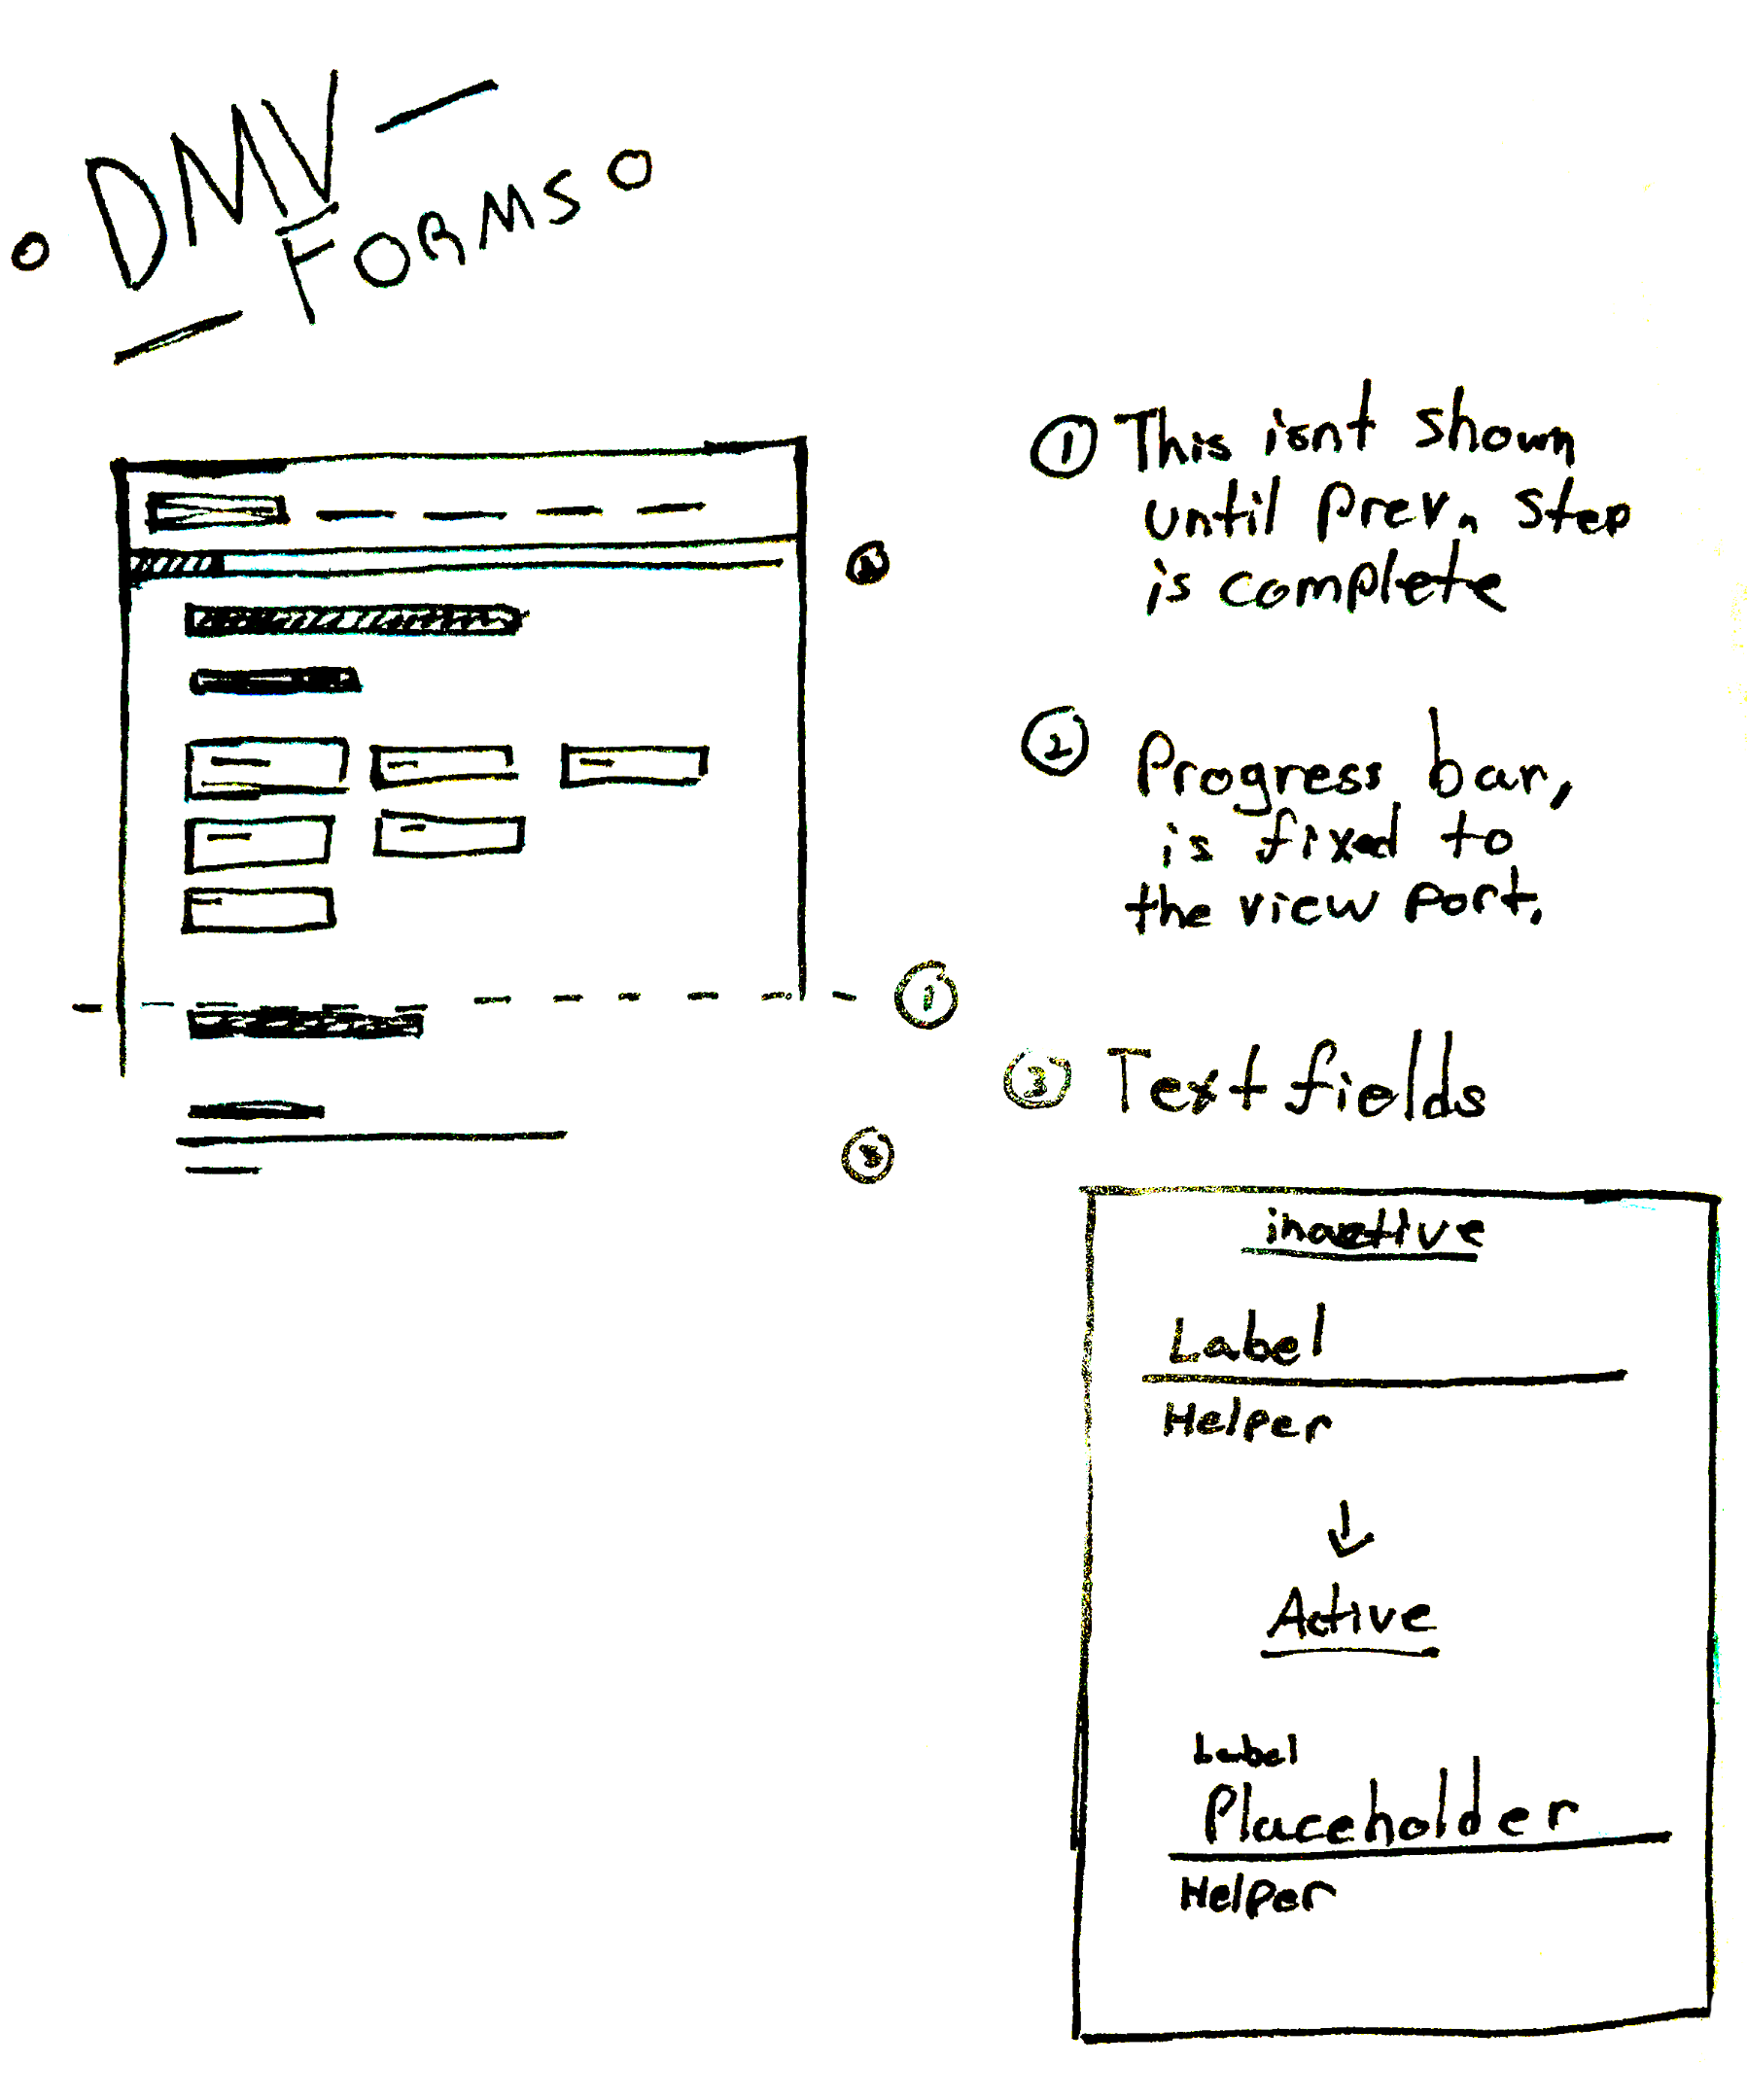 DMV
FORMS
① This isnt shown
until prev. step
is complete
② Progress bar,
is fixed to
the view port.
③ Text fields
②
①
③
inactive
Label
Helper
↓
Active
Label
Placeholder
Helper